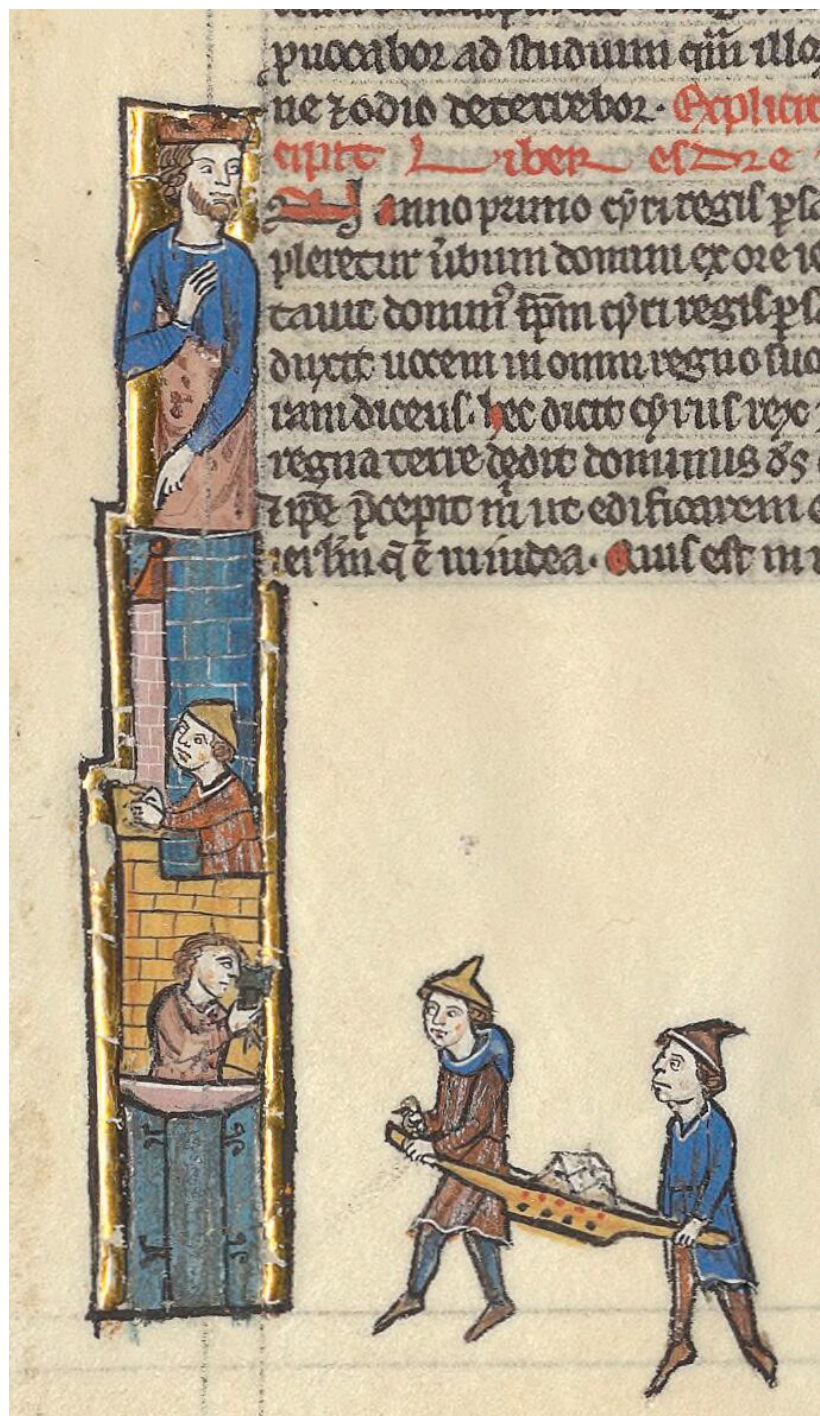 puocabor ad studium q̄m illoꝝ
ne ⁊ odio deterrebor. Explicit
cipit Liber esdre
In anno primo cyri regis ꝑsa
pleretur ūbum domini ex ore ie
tauit dominꝰ sp̄m cyri regis ꝑsa
duxit uocem in omni regno suo
ram dicens. hec dicit cyrus rex
regna terre dedit dominus d̄s
⁊ ip̄e p̄cepit m̄ ut edificarem
ierl̄m q̄ ē in iudea. Quis est in